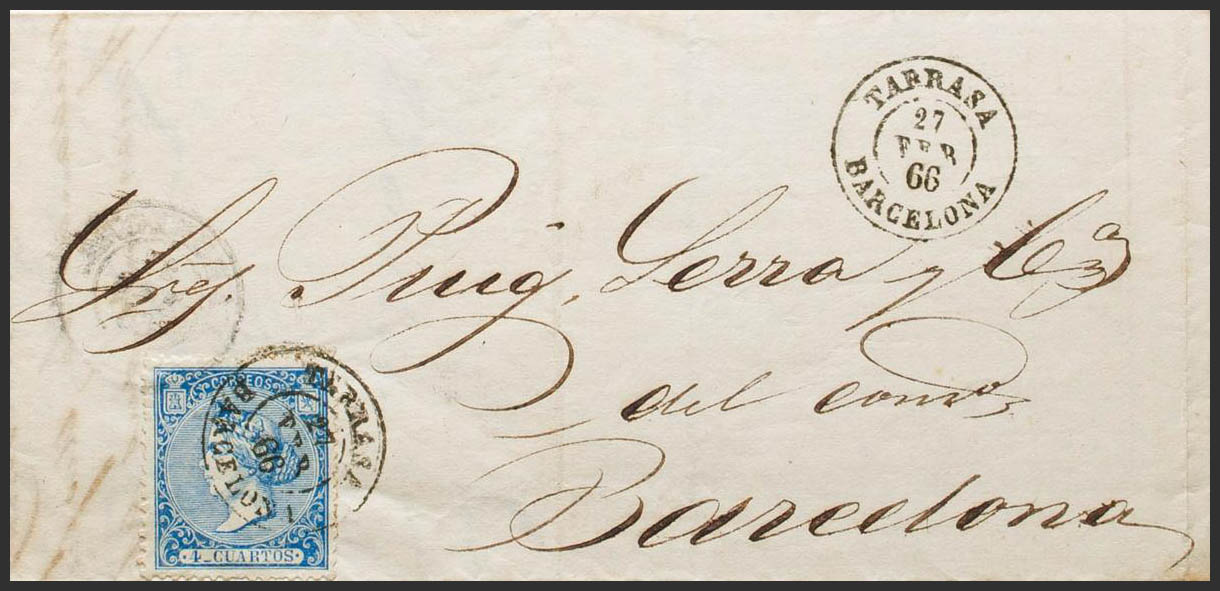 TARRASA
27
FEB
66
BARCELONA
Sres. Puig, Serra y Cía
del comº
Barcelona
CORREOS
TARRASA
27
FEB
66
BARCELONA
4_CUARTOS